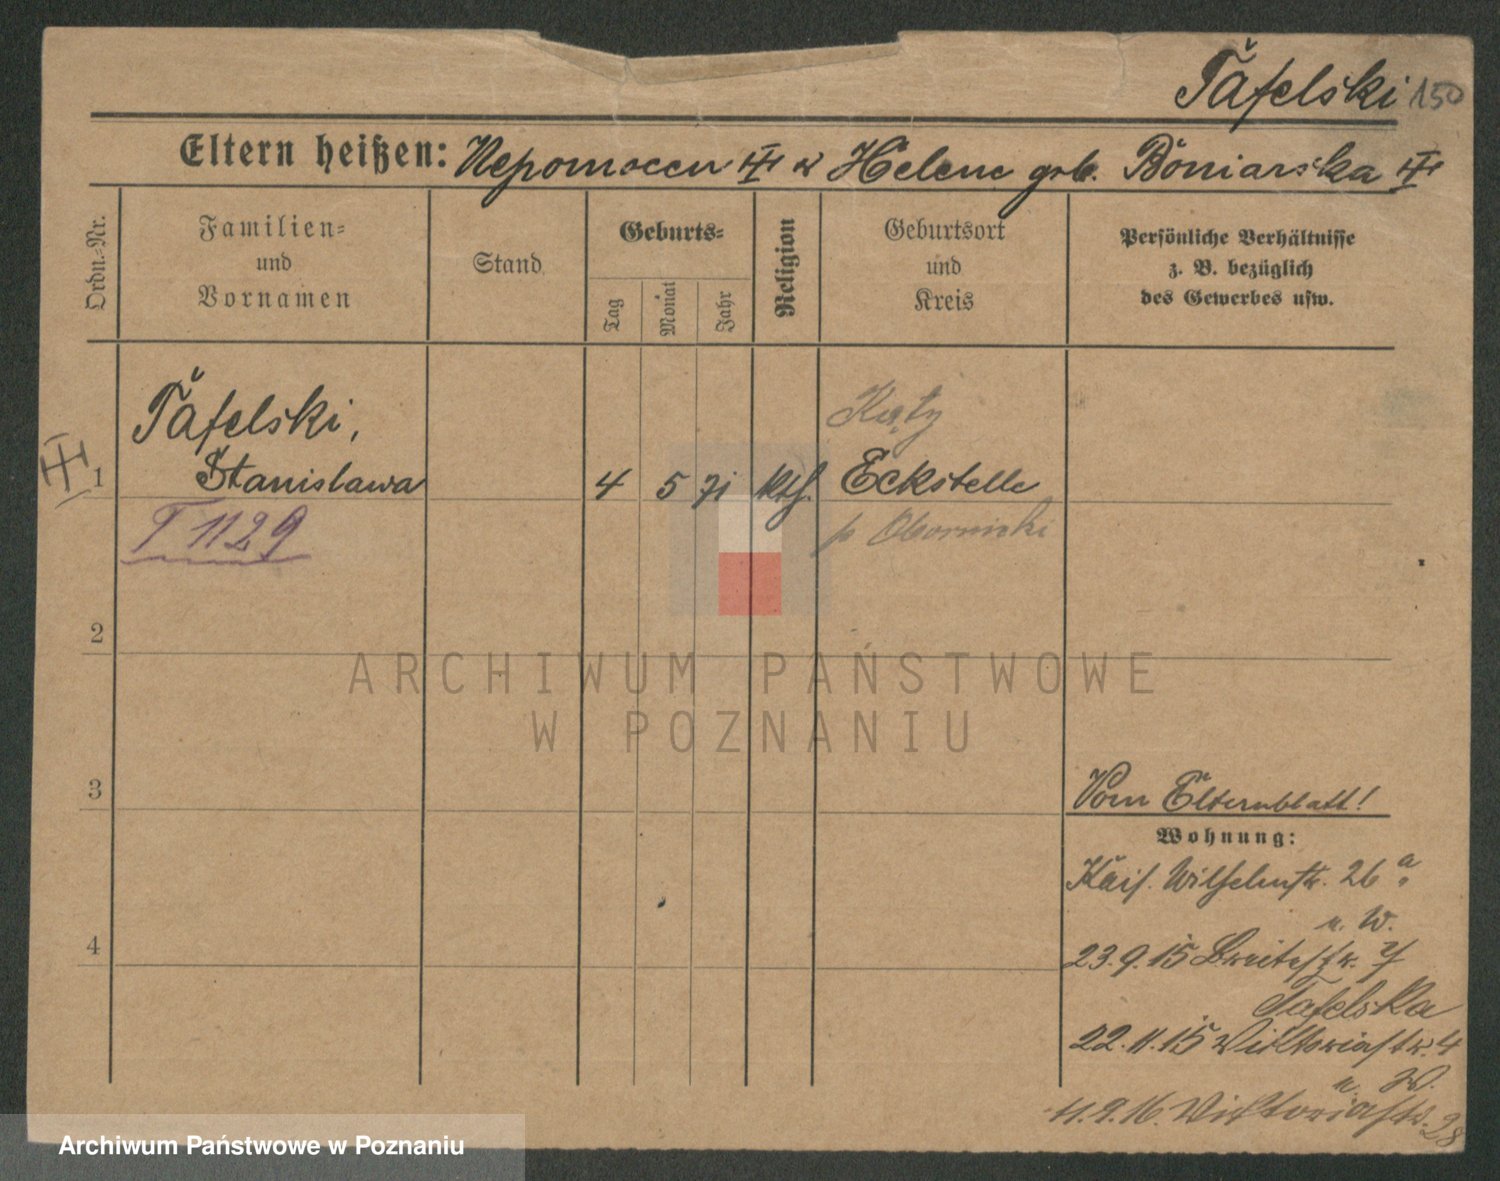 Tafelski 150
Eltern heißen: Nepomocen u Helene geb. Boniarska
Ordn.-Nr.
Familien-
und
Vornamen
Stand
Geburts-
Tag
Monat
Jahr
Religion
Geburtsort
und
Kreis
Persönliche Verhältnisse
z. B. bezüglich
des Gewerbes usw.
Tafelski,
Kąty
1 Stanislawa 4 5 71 kth. Eckstelle
T 1129
p Obornicki
2
3
Vom Elternblatt!
Wohnung:
Kais. Wilhelmstr. 26 a
u. W.
4
23.9.15 Breitestr. 7
Tafelska
22.11.15 Viktoriastr. 4
u. W.
11.9.16. Viktoriastr. 28
ARCHIWUM PAŃSTWOWE
W POZNANIU
Archiwum Państwowe w Poznaniu